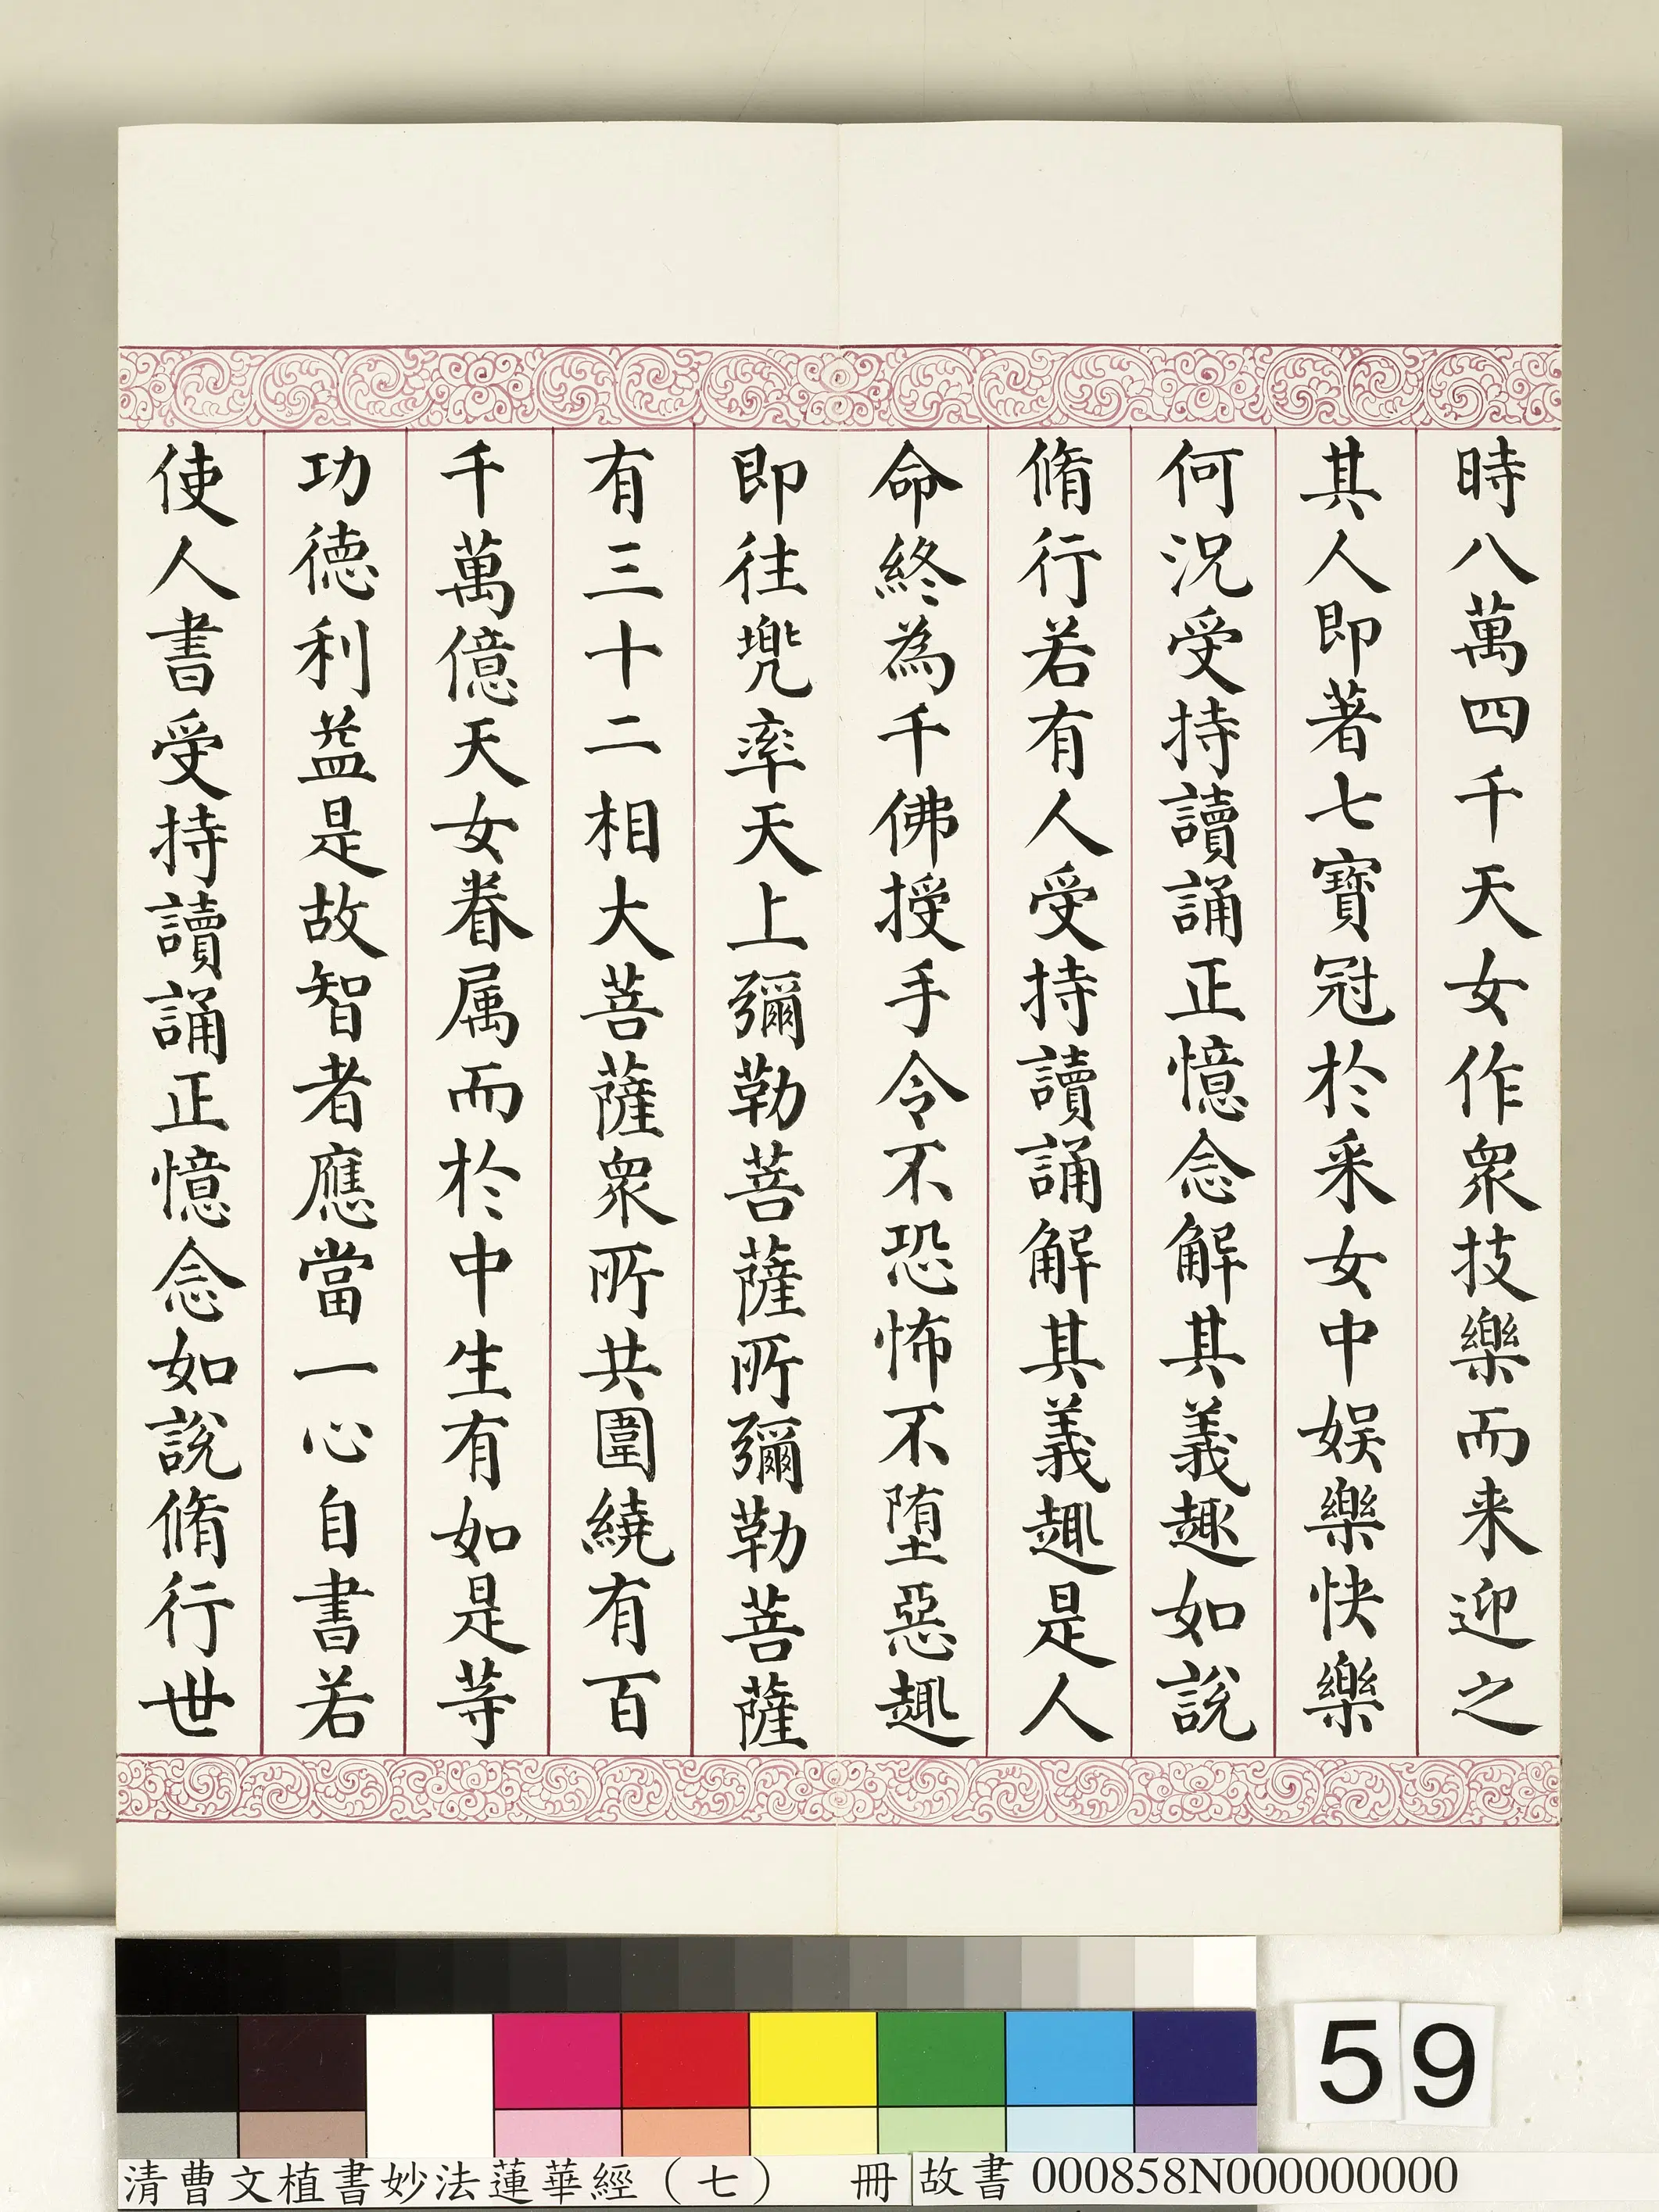 時八萬四千天女作衆技樂而来迎之
其人即著七寶冠於采女中娱樂快樂
何況受持讀誦正憶念解其義趣如説
脩行若有人受持讀誦解其義趣是人
命終為千佛授手令不恐怖不堕惡趣
即往兠率天上彌勒菩薩所彌勒菩薩
有三十二相大菩薩衆所共圍繞有百
千萬億天女眷属而於中生有如是等
功德利益是故智者應當一心自書若
使人書受持讀誦正憶念如説脩行世
59
清曹文植書妙法蓮華經（七） 冊 故書 000858N000000000